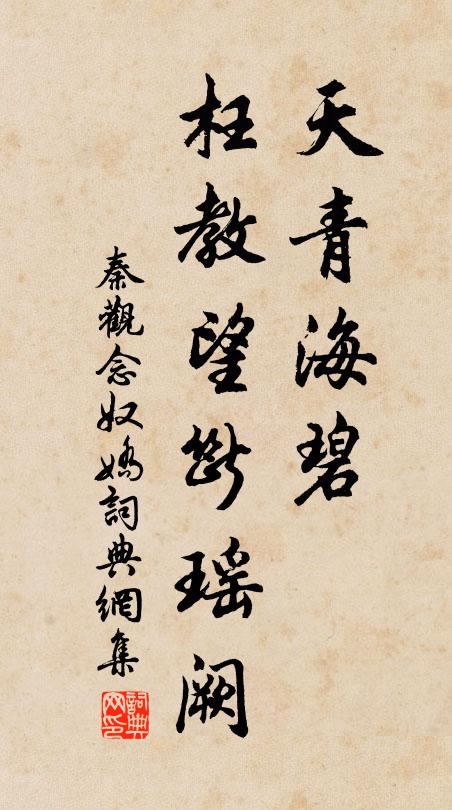 天青海碧
枉教望断瑶阙
秦觀念奴嬌詞典網集
詞典网印